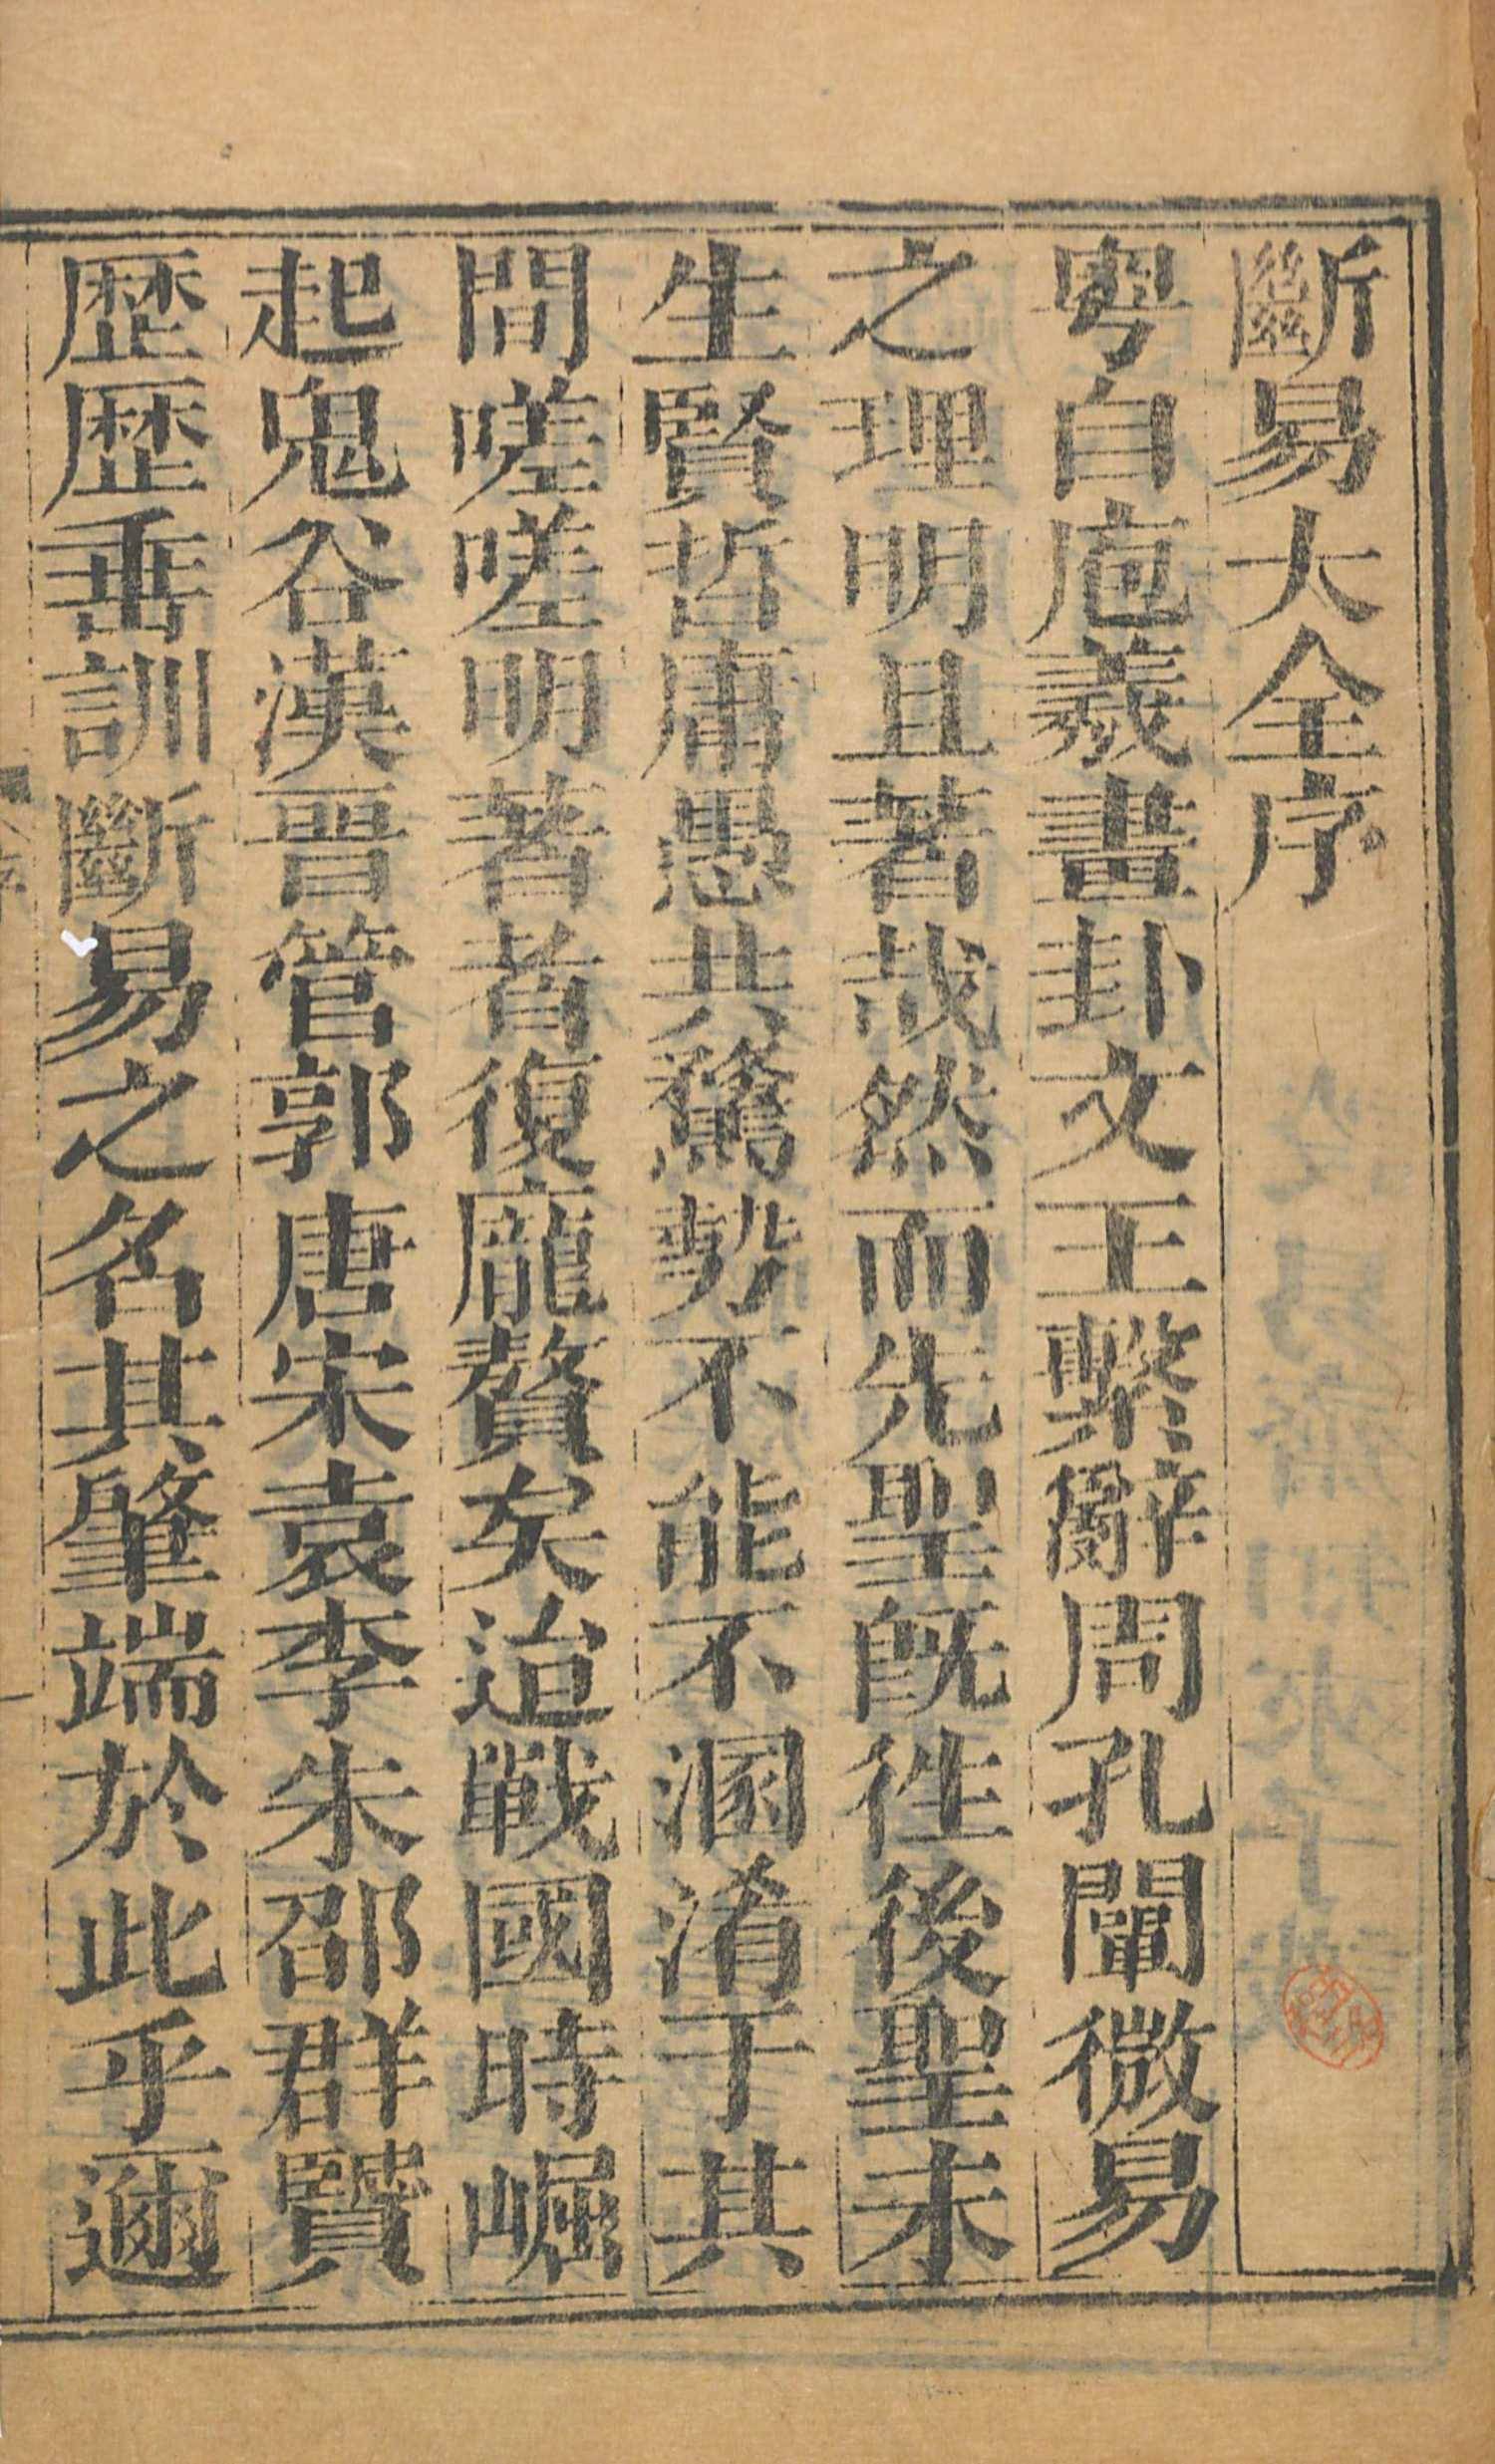 斷易大全序
粤自庖羲畫卦文王繫辭周孔闡微易
之理明且著哉然而先聖旣徃後聖未
生賢哲庸愚共騖勢不能不溷淆于其
間嗟嗟明著者復龐贅矣迨戰國時崛
起鬼谷漢晋管郭唐宋袁李朱邵群賢
歷歷垂訓斷易之名其肇端於此乎邇